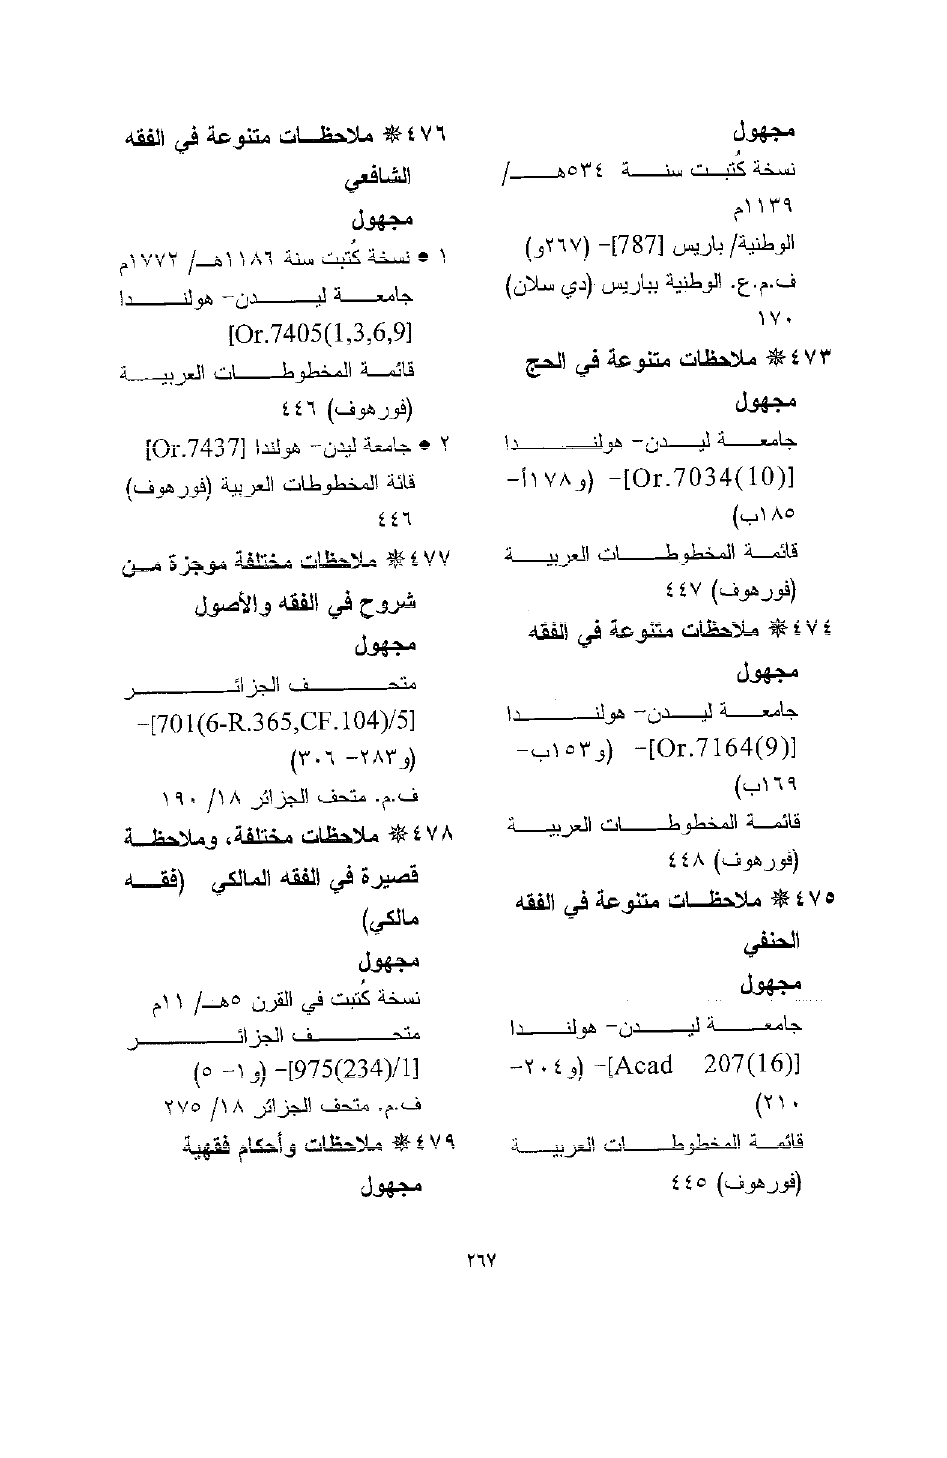 مجهول
نسخة كُتبت سنة ٥٣٤هـ/
١١٣٩م
الوطنية/ باريس [787]- (٢٦٧و)
ف.م.ع. الوطنية بباريس (دي سلان)
١٧٠
٤٧٣❋ ملاحظات متنوعة في الحج
مجهول
جامعة ليدن- هولندا
[Or.7034(10)]- (و١٧٨أ-
١٨٥ب)
قائمة المخطوطات العربية
(فورهوف) ٤٤٧
٤٧٤❋ ملاحظات متنوعة في الفقه
مجهول
جامعة ليدن- هولندا
[Or.7164(9)]- (و١٥٣ب-
١٦٩ب)
قائمة المخطوطات العربية
(فورهوف) ٤٤٨
٤٧٥❋ ملاحظات متنوعة في الفقه
الحنفي
مجهول
جامعة ليدن- هولندا
[Acad 207(16)]- (و٢٠٤-
٢١٠)
قائمة المخطوطات العربية
(فورهوف) ٤٤٥
٤٧٦❋ ملاحظات متنوعة في الفقه
الشافعي
مجهول
١ ● نسخة كُتبت سنة ١١٨٦هـ/ ١٧٧٢م
جامعة ليدن- هولندا
[Or.7405(1,3,6,9]
قائمة المخطوطات العربية
(فورهوف) ٤٤٦
٢ ● جامعة ليدن- هولندا [Or.7437]
قائة المخطوطات العربية (فورهوف)
٤٤٦
٤٧٧❋ ملاحظات مختلفة موجزة من
شروح في الفقه والأصول
مجهول
متحف الجزائر
[701(6-R.365,CF.104)/5]-
(و٢٨٣- ٣٠٦)
ف.م. متحف الجزائر ١٨/ ١٩٠
٤٧٨❋ ملاحظات مختلفة، وملاحظة
قصيرة في الفقه المالكي (فقه
مالكي)
مجهول
نسخة كُتبت في القرن ٥هـ/ ١١م
متحف الجزائر
[975(234)/1]- (و١- ٥)
ف.م. متحف الجزائر ١٨/ ٢٧٥
٤٧٩❋ ملاحظات وأحكام فقهية
مجهول
٢٦٧